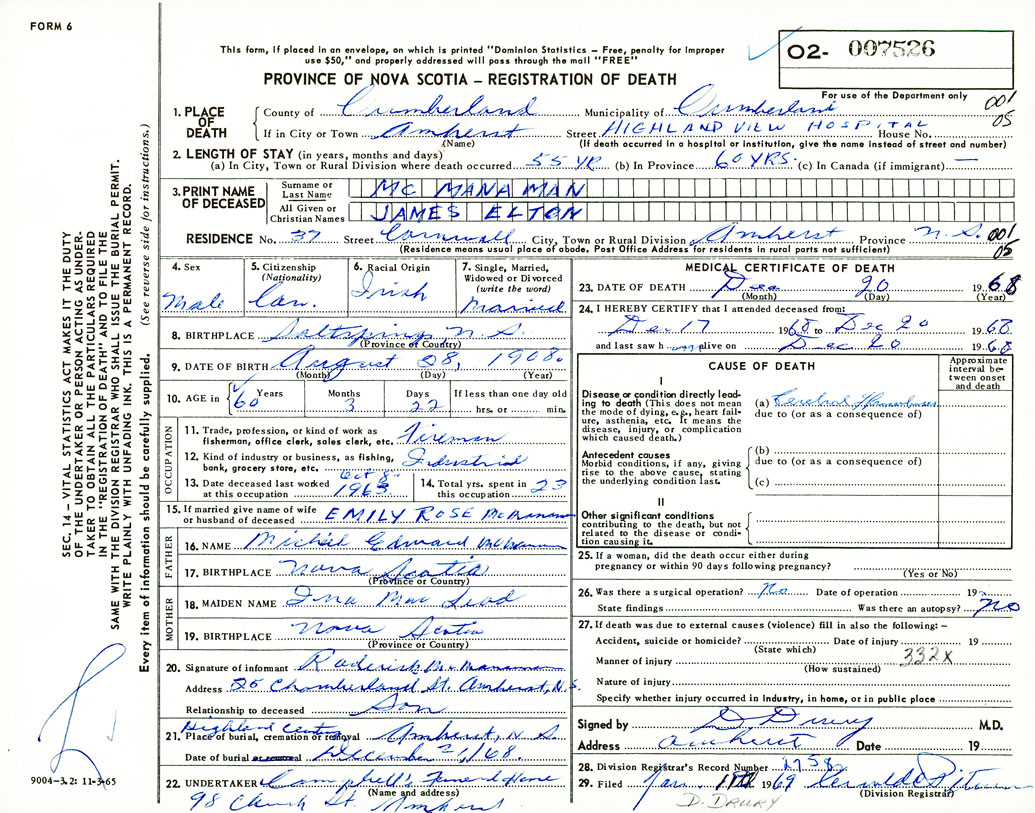 FORM 6
This form, if placed in an envelope, on which is printed "Dominion Statistics – Free, penalty for improper
use $50," and properly addressed will pass through the mail "FREE"
O2- 007526
PROVINCE OF NOVA SCOTIA – REGISTRATION OF DEATH
For use of the Department only
001
05
1. PLACE OF DEATH
County of Cumberland Municipality of Cumberland
If in City or Town Amherst Street HIGHLAND VIEW HOSPITAL House No.
(Name) (If death occurred in a hospital or institution, give the name instead of street and number)
2. LENGTH OF STAY (in years, months and days)
(a) In City, Town or Rural Division where death occurred 55 YR (b) In Province 60 YRS. (c) In Canada (if immigrant) —
3. PRINT NAME OF DECEASED
Surname or Last Name MC MANAMAN
All Given or Christian Names JAMES ELTON
RESIDENCE No. 37 Street Cornwall City, Town or Rural Division Amherst Province N.S. 001
05
(Residence means usual place of abode. Post Office Address for residents in rural parts not sufficient)
4. Sex
Male
5. Citizenship
(Nationality)
Can.
6. Racial Origin
Irish
7. Single, Married,
Widowed or Divorced
(write the word)
Married
8. BIRTHPLACE Saltsprings N.S.
(Province or Country)
9. DATE OF BIRTH August 28, 1908.
(Month) (Day) (Year)
10. AGE in 60 Years Months 3 Days 22 If less than one day old
hrs. or min.
OCCUPATION
11. Trade, profession, or kind of work as
fisherman, office clerk, sales clerk, etc. Fireman
12. Kind of industry or business, as fishing,
bank, grocery store, etc. Industrial
13. Date deceased last worked
at this occupation Oct 8- 1963
14. Total yrs. spent in
this occupation 23
15. If married give name of wife
or husband of deceased EMILY ROSE McManaman
FATHER
16. NAME Edward
17. BIRTHPLACE Nova Scotia
(Province or Country)
MOTHER
18. MAIDEN NAME Ina Mac Leod
19. BIRTHPLACE Nova Scotia
(Province or Country)
20. Signature of informant Roderick McManaman
Address 25 Chamberland St. Amherst, N.S.
Relationship to deceased Son
21. Place of burial, cremation or removal Highland Cemetery Amherst, N.S.
Date of burial or removal December 21/68
22. UNDERTAKER Campbell's Funeral Home
(Name and address)
98 Church St. Amherst
MEDICAL CERTIFICATE OF DEATH
23. DATE OF DEATH Dec 20 1968
(Month) (Day) (Year)
24. I HEREBY CERTIFY that I attended deceased from:
Dec 17 1968 to Dec 20 1968
and last saw h im alive on Dec 20 1968
CAUSE OF DEATH
Approximate
interval be-
tween onset
and death
I
Disease or condition directly lead-
ing to death (This does not mean
the mode of dying, e.g., heart fail-
ure, asthenia, etc. It means the
disease, injury, or complication
which caused death.)
(a) Cerebral Thrombosis
due to (or as a consequence of)
Antecedent causes
Morbid conditions, if any, giving
rise to the above cause, stating
the underlying condition last.
(b)
due to (or as a consequence of)
(c)
II
Other significant conditions
contributing to the death, but not
related to the disease or condi-
tion causing it.
25. If a woman, did the death occur either during
pregnancy or within 90 days following pregnancy?
(Yes or No)
26. Was there a surgical operation? No Date of operation 19
State findings Was there an autopsy? No
27. If death was due to external causes (violence) fill in also the following:–
Accident, suicide or homicide? Date of injury 19
(State which)
Manner of injury 332X
(How sustained)
Nature of injury
Specify whether injury occurred in industry, in home, or in public place
Signed by D Drury M.D.
Address Amherst Date 19
28. Division Registrar's Record Number 1758
29. Filed Jan. 11th 1969
(Division Registrar)
D. DRURY
SEC. 14 – VITAL STATISTICS ACT MAKES IT THE DUTY
OF THE UNDERTAKER OR PERSON ACTING AS UNDER-
TAKER TO OBTAIN ALL THE PARTICULARS REQUIRED
IN THE "REGISTRATION OF DEATH" AND TO FILE THE
SAME WITH THE DIVISION REGISTRAR WHO SHALL ISSUE THE BURIAL PERMIT.
WRITE PLAINLY WITH UNFADING INK. THIS IS A PERMANENT RECORD.
Every item of information should be carefully supplied. (See reverse side for instructions.)
9004-3.2: 11-3-65